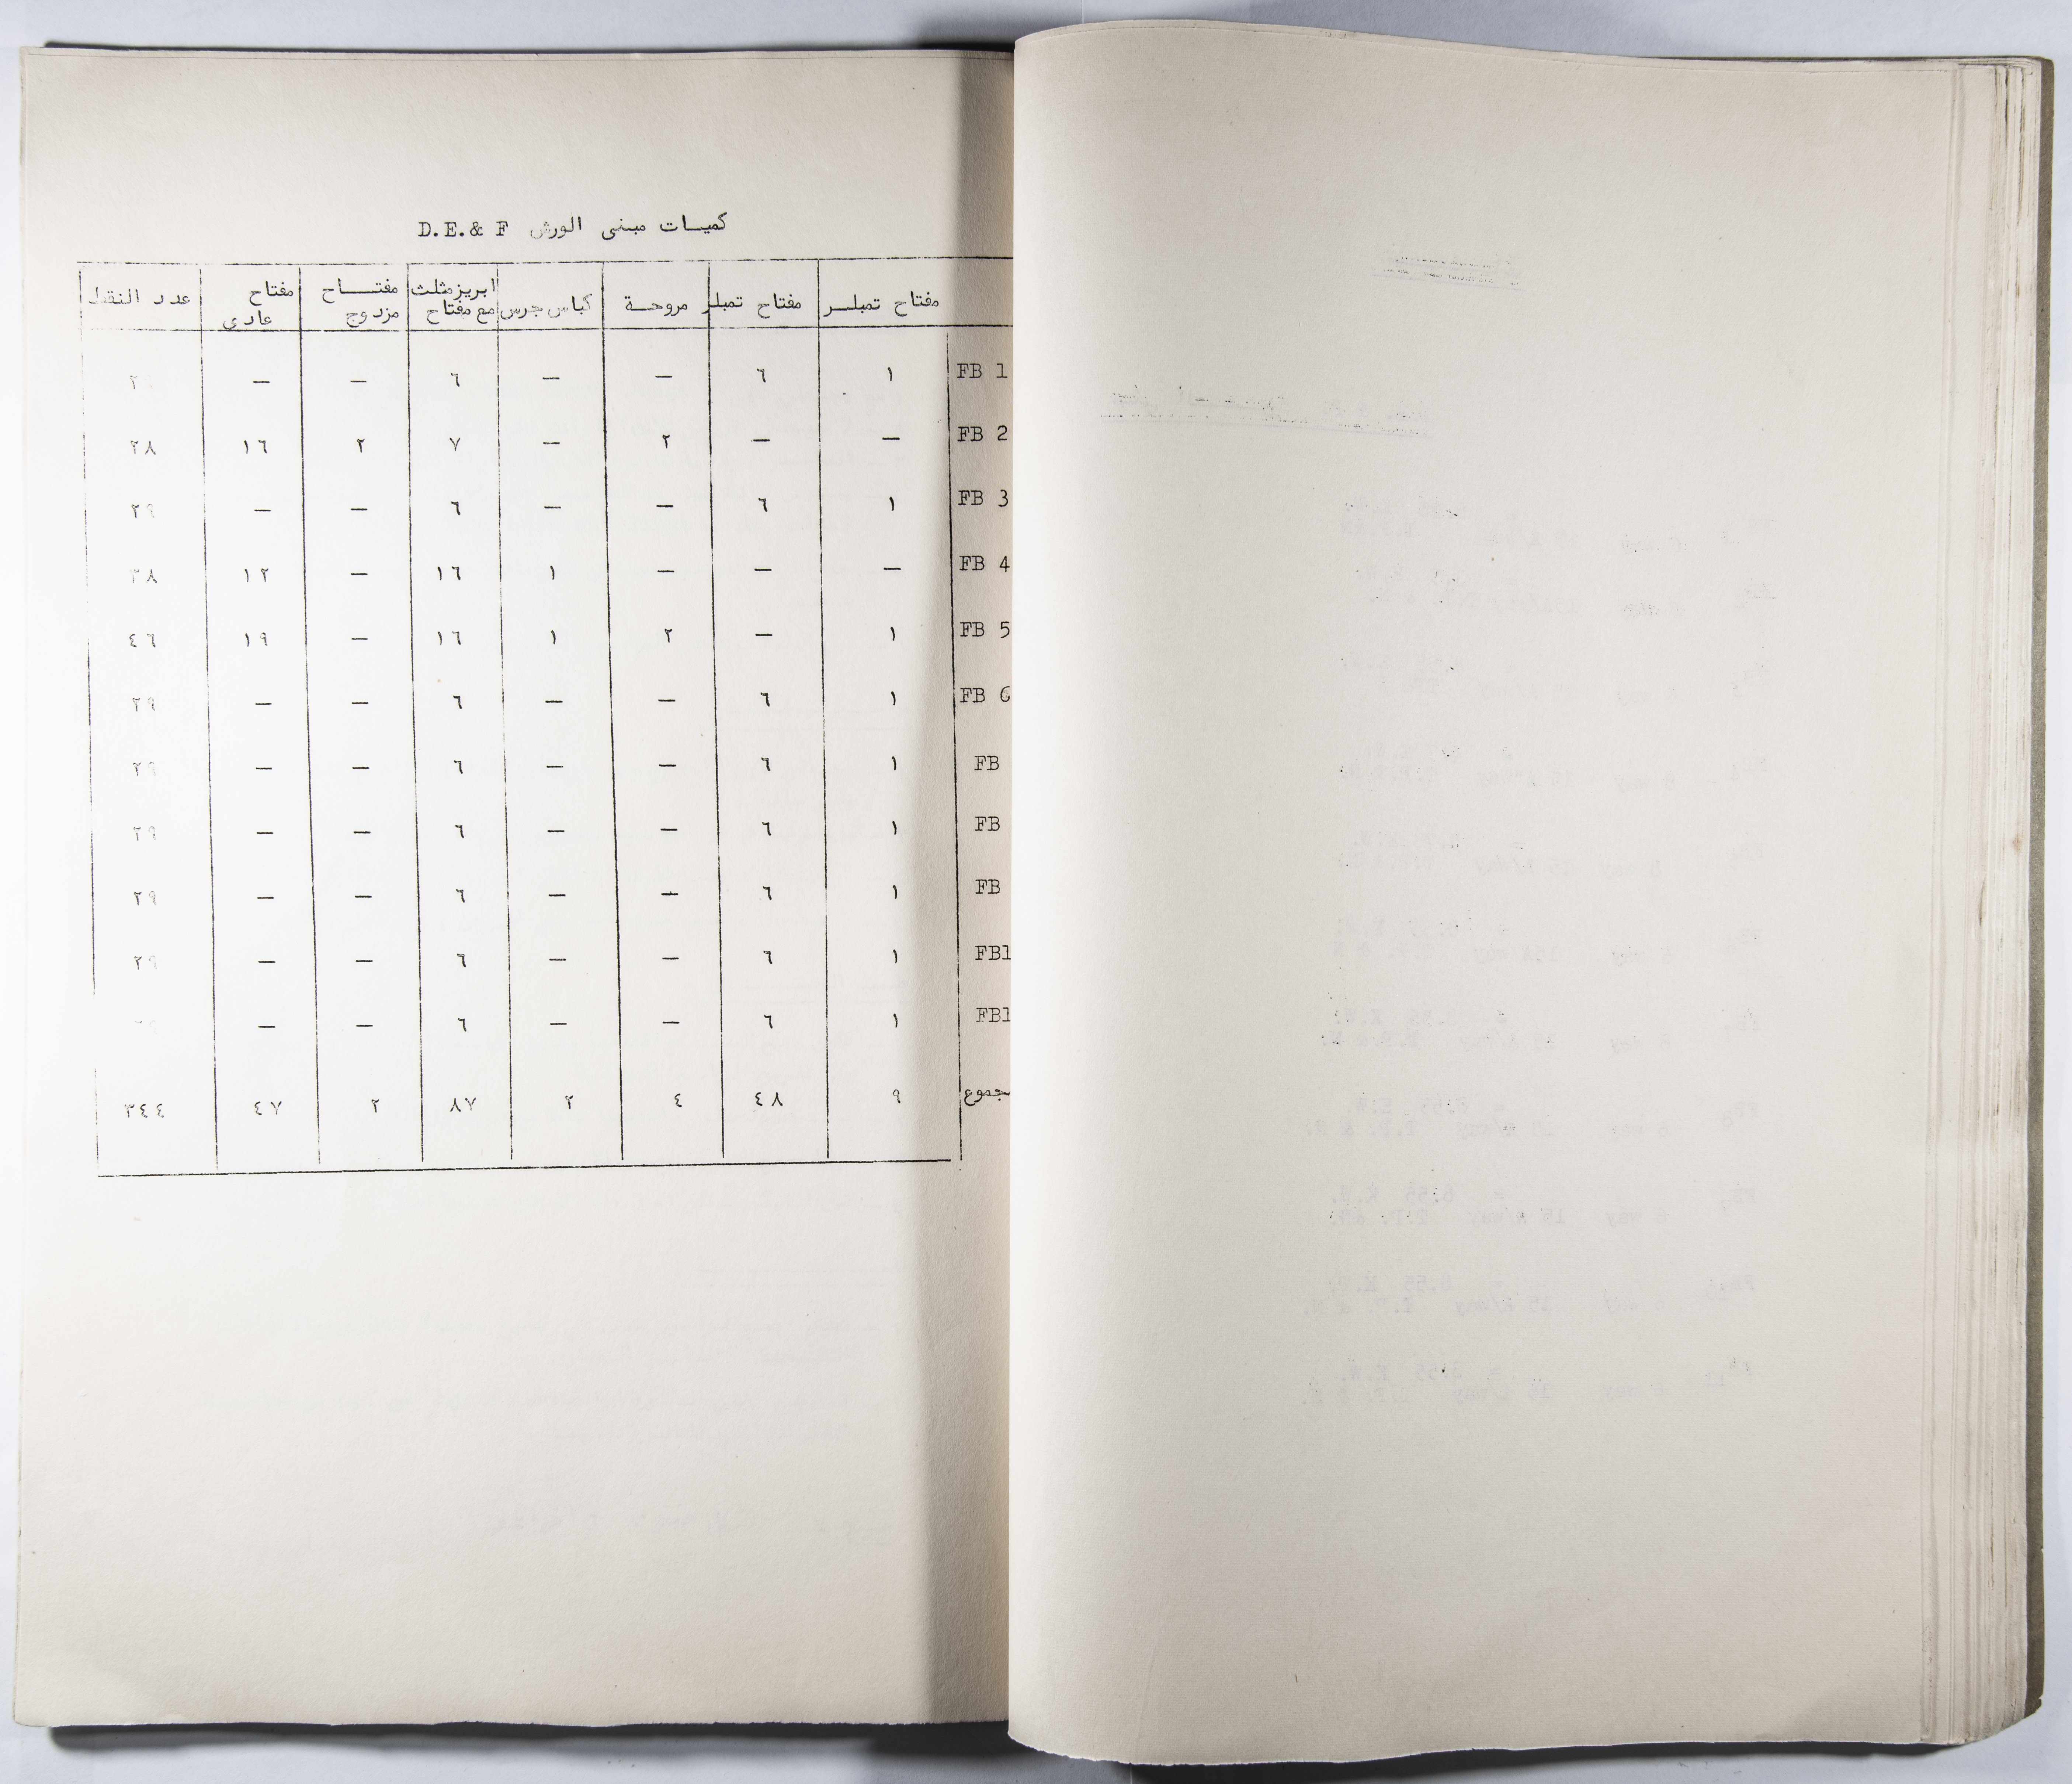 كميات مبنى الورش D.E.& F
مفتاح تمبلر مفتاح تمبلر مروحة كباس جرس ابريز مثلث مع مفتاح مفتاح مزدوج مفتاح عادى عدد النقط
FB 1 ١ ٦ — — ٦ — — ٢٩
FB 2 — — ٢ — ٧ ٢ ١٦ ٢٨
FB 3 ١ ٦ — — ٦ — — ٢٩
FB 4 — — — ١ ١٦ — ١٢ ٣٨
FB 5 ١ — ٢ ١ ١٦ — ١٩ ٤٦
FB 6 ١ ٦ — — ٦ — — ٢٩
FB ١ ٦ — — ٦ — — ٢٩
FB ١ ٦ — — ٦ — — ٢٩
FB ١ ٦ — — ٦ — — ٢٩
FB1 ١ ٦ — — ٦ — — ٢٩
FB1 ١ ٦ — — ٦ — — ٢٩
جموع ٩ ٤٨ ٤ ٢ ٨٧ ٢ ٤٧ ٣٤٤